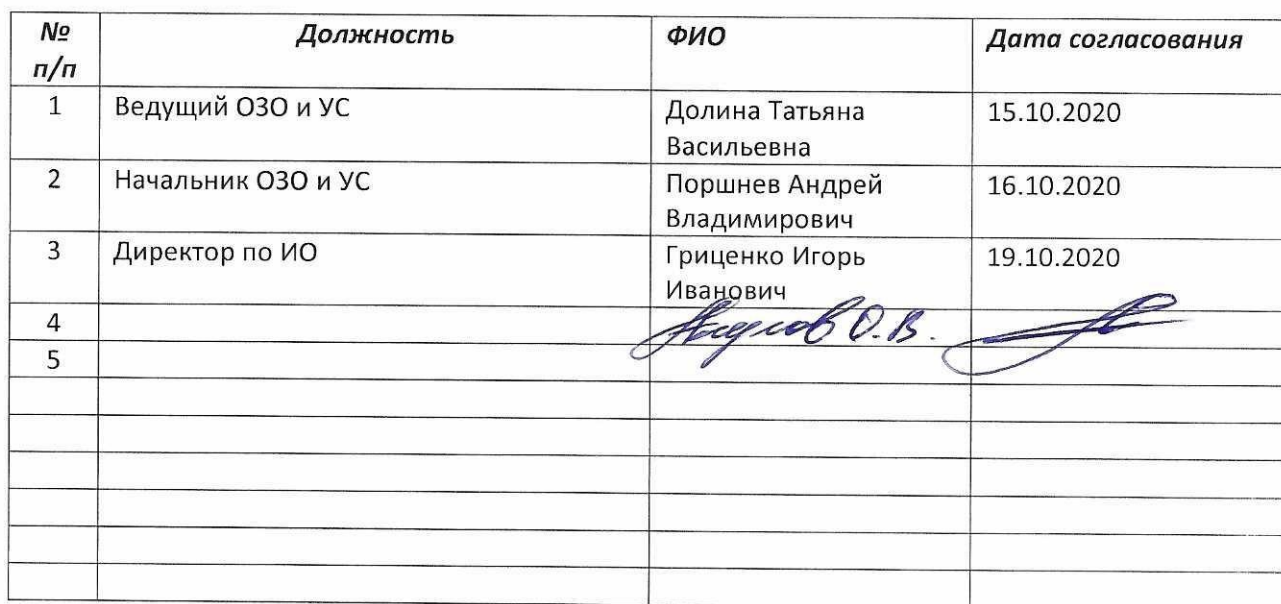 № п/п Должность ФИО Дата согласования
1 Ведущий ОЗО и УС Долина Татьяна Васильевна 15.10.2020
2 Начальник ОЗО и УС Поршнев Андрей Владимирович 16.10.2020
3 Директор по ИО Гриценко Игорь Иванович 19.10.2020
4 О.В.
5